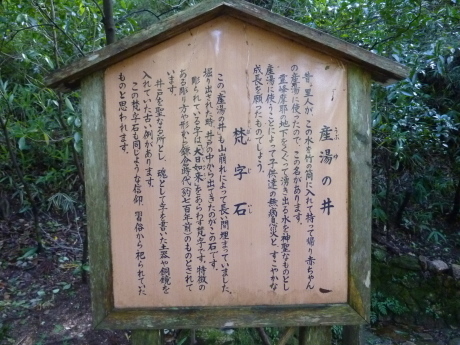 産湯の井
うぶゆ
昔、里人が、この水を竹の筒に入れて持って帰り赤ちゃん
の産湯に使ったので、この名があります。
霊峰摩耶の地下をくぐって湧き出る水を神聖なものとし
産湯に使うことによって子供達の無病息災と、すこやかな
成長を願ったものでしょう。
梵字石
この「産湯の井」も山崩れによって長い間埋まっていました。
掘り出された時、井戸の中から出てきたのがこの石です。
彫られている字は「大日如来」をあらわす梵字です。特徴の
ある彫り方や形から鎌倉時代(約七百年前)のものとされて
います。
井戸を聖なる所とし、魂として字を書いた土器や銅鏡を
入れていた古い例があります。
この梵字石も同じような信仰、習俗から祀られていた
ものと思われます。